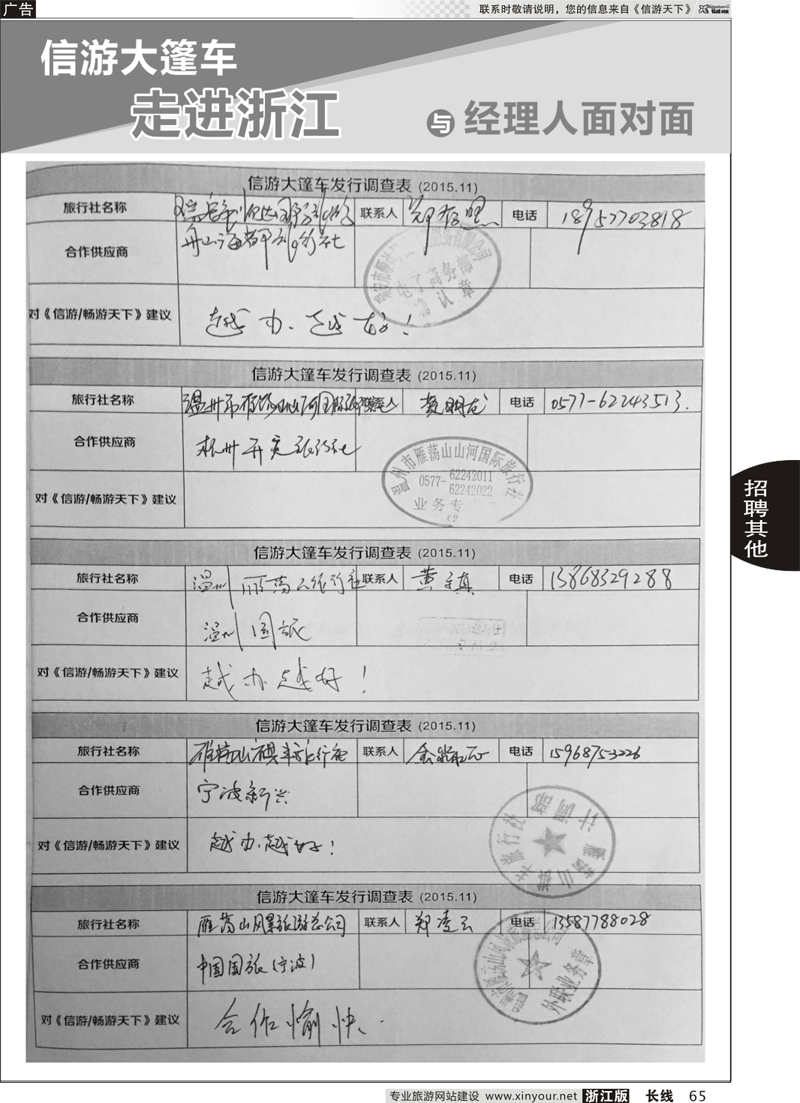 广告
联系时敬请说明，您的信息来自《信游天下》
信游大篷车
走进浙江
与经理人面对面
信游大篷车发行调查表 (2015.11)
旅行社名称 联系人 电话 18957703818
合作供应商 舟山海都
对《信游/畅游天下》建议 越办、越好！
信游大篷车发行调查表 (2015.11)
旅行社名称 温州市雁荡山山河国际旅 联系人 电话 0577-62243513.
合作供应商 杭州 旅行社
温州市雁荡山山河国际旅行社
0577-62242011
62242022
业务专
对《信游/畅游天下》建议
信游大篷车发行调查表 (2015.11)
旅行社名称 温州雁荡 旅行社 联系人 黄 电话 13868329288
合作供应商 温州国旅
对《信游/畅游天下》建议 越办越好！
信游大篷车发行调查表 (2015.11)
旅行社名称 雁荡山 旅行社 联系人 电话 15968753226
合作供应商 宁波新兴
对《信游/畅游天下》建议 越办越好！
信游大篷车发行调查表 (2015.11)
旅行社名称 雁荡山风景旅游总公司 联系人 郑凌云 电话 13587788028
合作供应商 中国国旅(宁波)
外联业务章
对《信游/畅游天下》建议 合作愉快、
招聘其他
专业旅游网站建设 www.xinyour.net 浙江版 长线 65